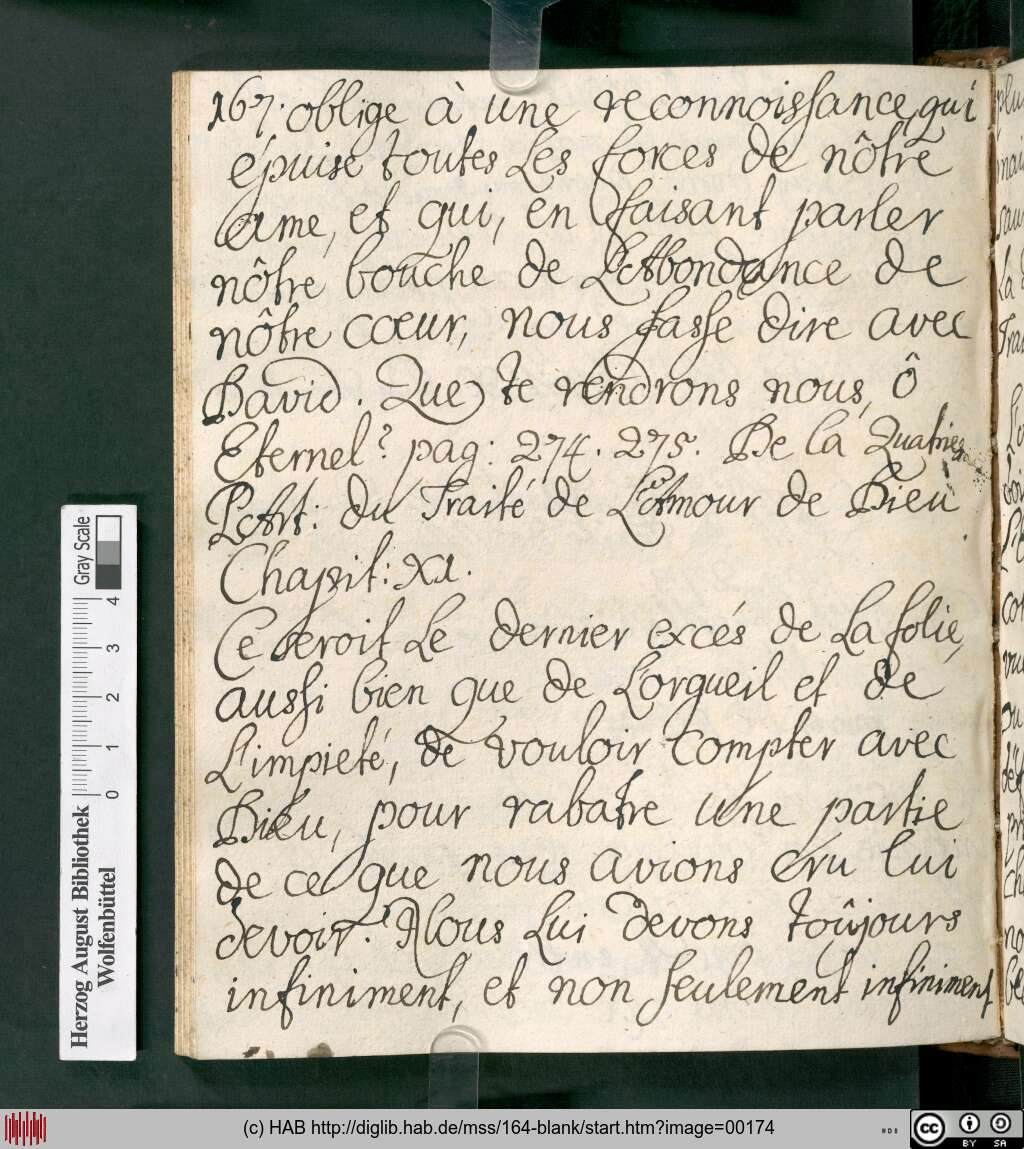 167. oblige à une reconnoissance, qui
épuise toutes Les forces de nôtre
ame, et qui, en faisant parler
nôtre bouche de L'Abondance de
nôtre cœur, nous fasse dire avec
David. Que te rendrons nous, ô
Eternel? pag: 274. 275. De la Quatries
Part: du Traité de L'Amour de Dieu
Chapit: XI.
Ce seroit Le dernier excés de La folie,
aussi bien que de Lorgueil et de
L'impieté, de vouloir compter avec
Dieu, pour rabatre une partie
de ce que nous avions cru lui
devoir. Nous Lui devons toûjours
infiniment, et non seulement infiniment
Gray Scale
0 1 2 3 4
Herzog August Bibliothek
Wolfenbüttel
(c) HAB http://diglib.hab.de/mss/164-blank/start.htm?image=00174
cc BY SA